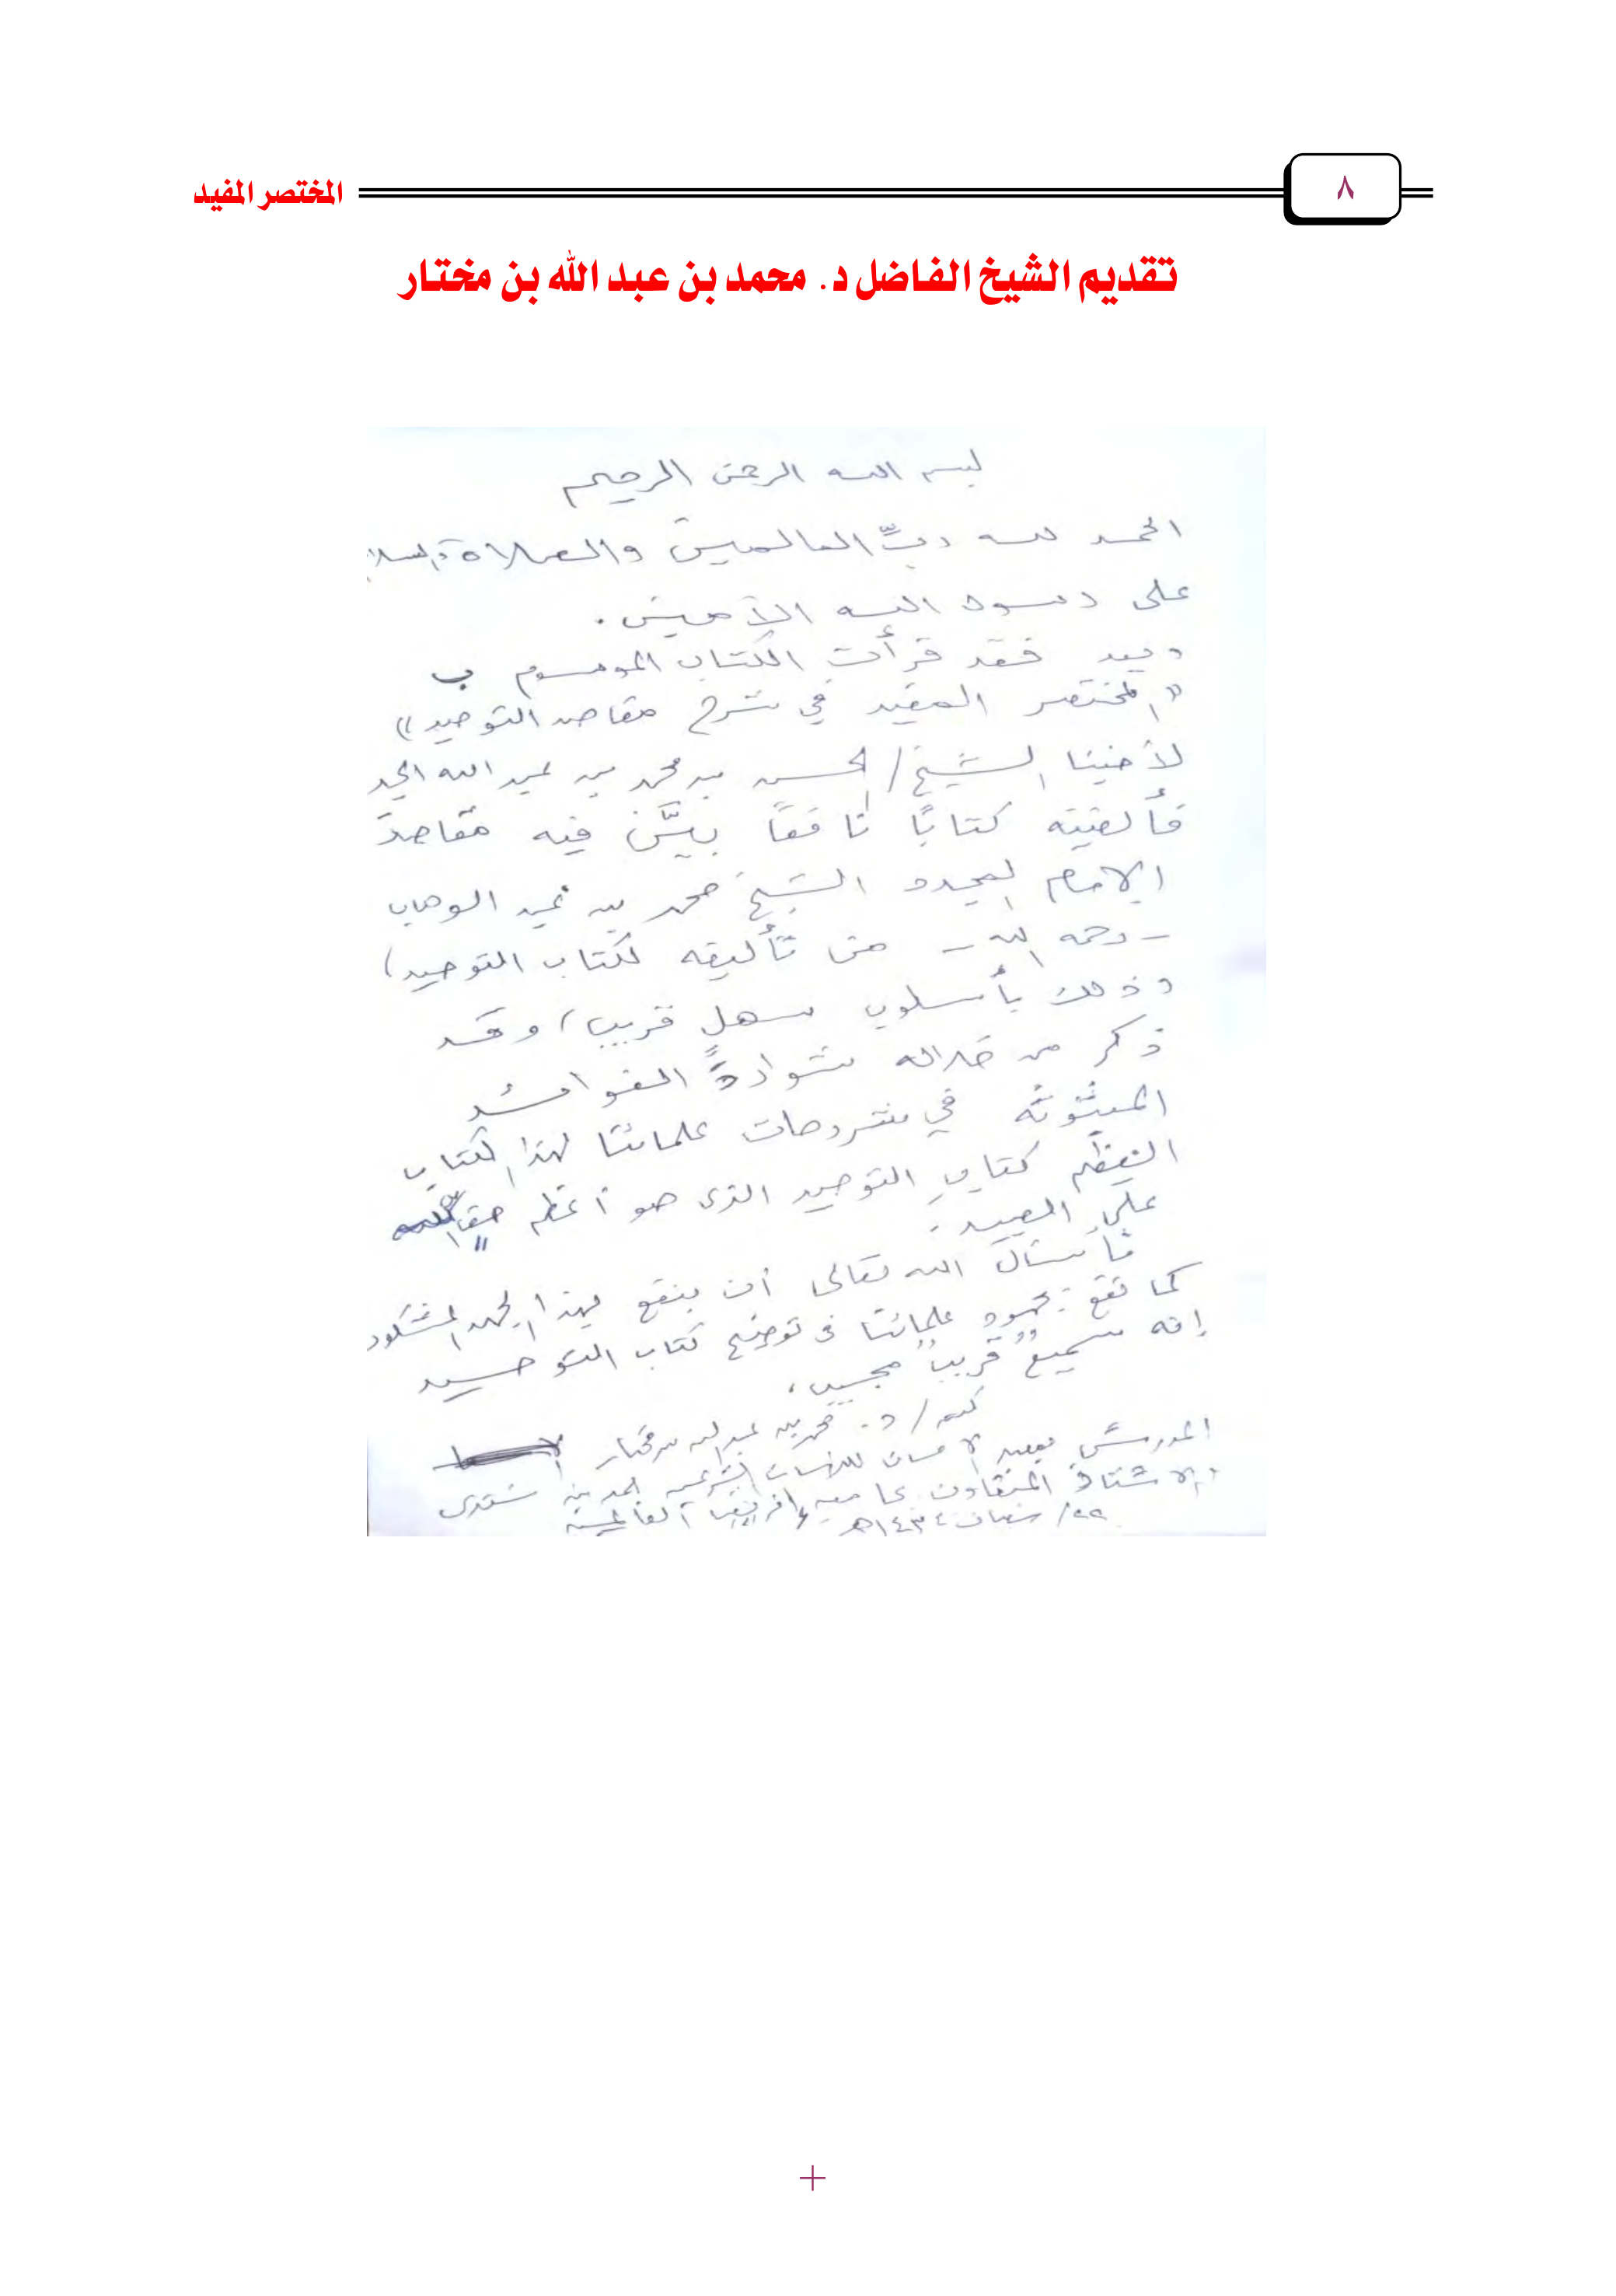 المختصر المفيد
٨
تقديم الشيخ الفاضل د. محمد بن عبد الله بن مختار
بسم الله الرحمن الرحيم
الحمد لله ربِّ العالمين والصلاة والسلام
على رسول الله الأمين.
وبعد فقد قرأت الكتاب الموسوم ب
«المختصر المفيد في شرح مقاصد التوحيد»
لأخينا الشيخ/ الحسن بن محمد بن عبد الله
فألفيته كتابًا نافعًا بيَّن فيه مقاصدَ
الإمام المجدد الشيخ محمد بن عبد الوهاب
- رحمه الله - من تأليفه لكتاب التوحيد،
وذلك بأسلوب سهلٍ قريب، وقد
ذكر من خلاله شوارد الفوائد
المبثوثة في شروحات علمائنا لهذا الكتاب
العظيم كتابِ التوحيد الذي هو أعظم حق لله
على العبيد.
فأسأل الله تعالى أن ينفع بهذا الجهد المشكور
كما نفع بجهود علمائنا في توضيح كتاب التوحيد
إنه سميعٌ قريبٌ مجيب،
كتبه/ د. محمد بن عبد الله بن مختار
المدرس بمعهد الإحسان للدراسات الشرعية
والأستاذ المتعاون بجامعة إفريقيا العالمية
٢٢/ شعبان ١٤٣٤هـ